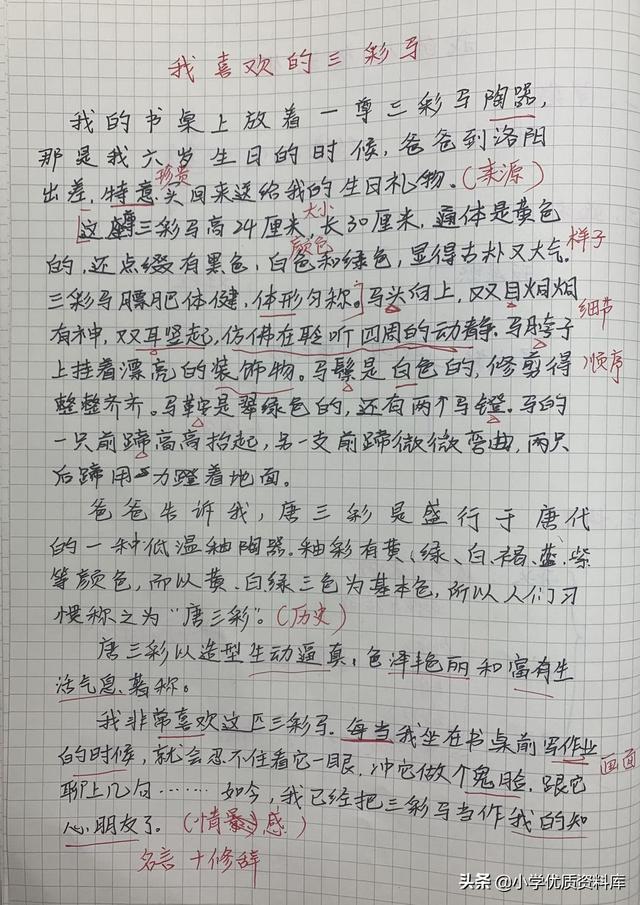 我喜欢的三彩马
我的书桌上放着一尊三彩马陶器,
那是我六岁生日的时候,爸爸到洛阳
珍贵
出差,特意买回来送给我的生日礼物。(来源)
大小
[这尊三彩马高24厘米,长30厘米,通体是黄色
颜色
的,还点缀有黑色,白色和绿色,显得古朴又大气。
样子
三彩马膘肥体健,体形匀称。]马头向上,双目炯炯
有神,双耳竖起,仿佛在聆听四周的动静。马脖子
细节
上挂着漂亮的装饰物。马鬃是白色的,修剪得
顺序
整整齐齐。马鞍是翠绿色的,还有两个马镫。马的
一只前蹄高高抬起,另一支前蹄微微弯曲,两只
后蹄用力蹬着地面。
爸爸告诉我,唐三彩是盛行于唐代
的一种低温釉陶器。釉彩有黄、绿、白、褐、蓝、紫
等颜色,而以黄、白、绿三色为基本色,所以人们习
惯称之为“唐三彩”。(历史)
唐三彩以造型生动逼真,色泽艳丽和富有生
活气息、著称。
我非常喜欢这匹三彩马。每当我坐在书桌前写作业
的时候,就会忍不住看它一眼,冲它做个鬼脸,跟它
画面
聊上几句……如今,我已经把三彩马当作我的知
心朋友了。(情感)
名言+修辞
头条@小学优质资料库